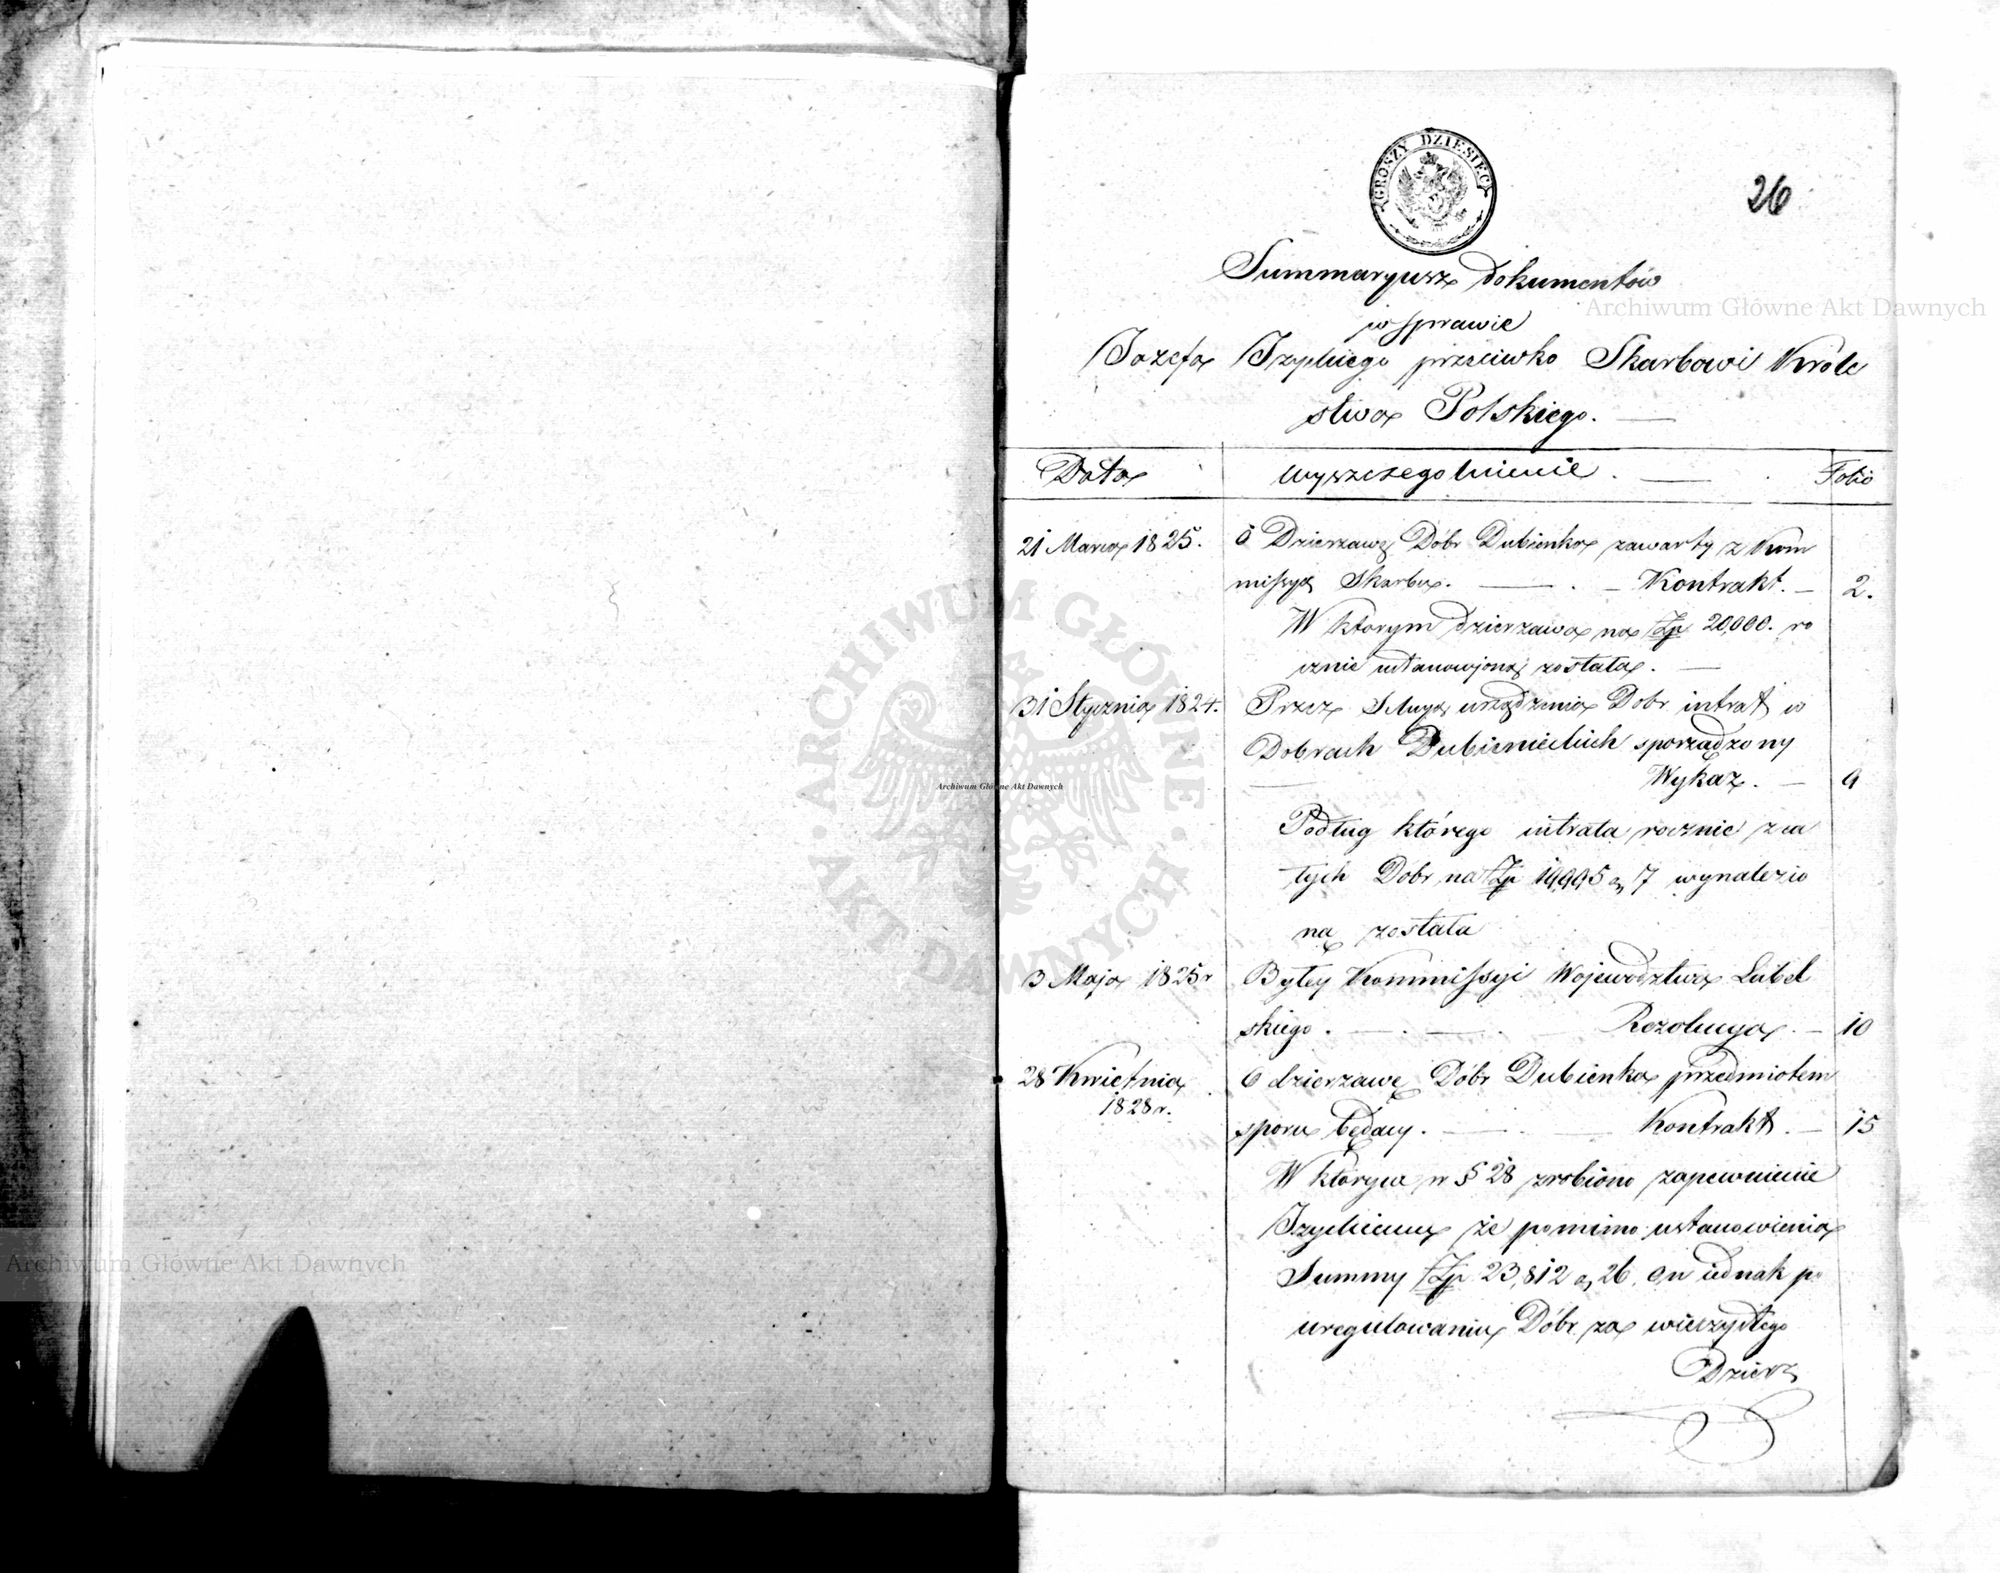 GROSZY DZIESIĘĆ
26
Summaryusz dokumentów
w sprawie
Józefa Izyckiego przeciwko Skarbowi Króle
stwa Polskiego.
Data
Wyszczegolnienie.
Folio
21 Marca 1825.
o Dzierzawę Dóbr Dubienka zawarty z Kom
missyą Skarbu. Kontrakt.
2.
W ktorym dzierzawa na Złp 20,000. ro
cznie ustanowjoną została.
31 Stycznia 1824.
Przez urządzenia Dobr intrat w
Dobrach Dubienieckich sporządzony
Wykaz.
9
Podług którego intrata rocznie za
tych Dobr na Złp 19,995 g 7 wynalezio
ną została
3 Maja 1825 r
Byłey Kommissyi Wojewodztwa Lubel
skiego. Rezolucya.
10
28 Kwietnia
1828 r.
O dzierzawę Dóbr Dubienka przedmiotem
sporu będący. Kontrakt.
15
W którym w § 28 zrobiono zapewnienie
Izyckiemu że pomimo ustanowienia
Summy Złp 23,812 g 26, on iednak po
uregulowaniu Dóbr za wieczystego
Dzierz
Archiwum Główne Akt Dawnych
Archiwum Główne Akt Dawnych
Archiwum Główne Akt Dawnych
ARCHIWUM GŁÓWNE AKT DAWNYCH